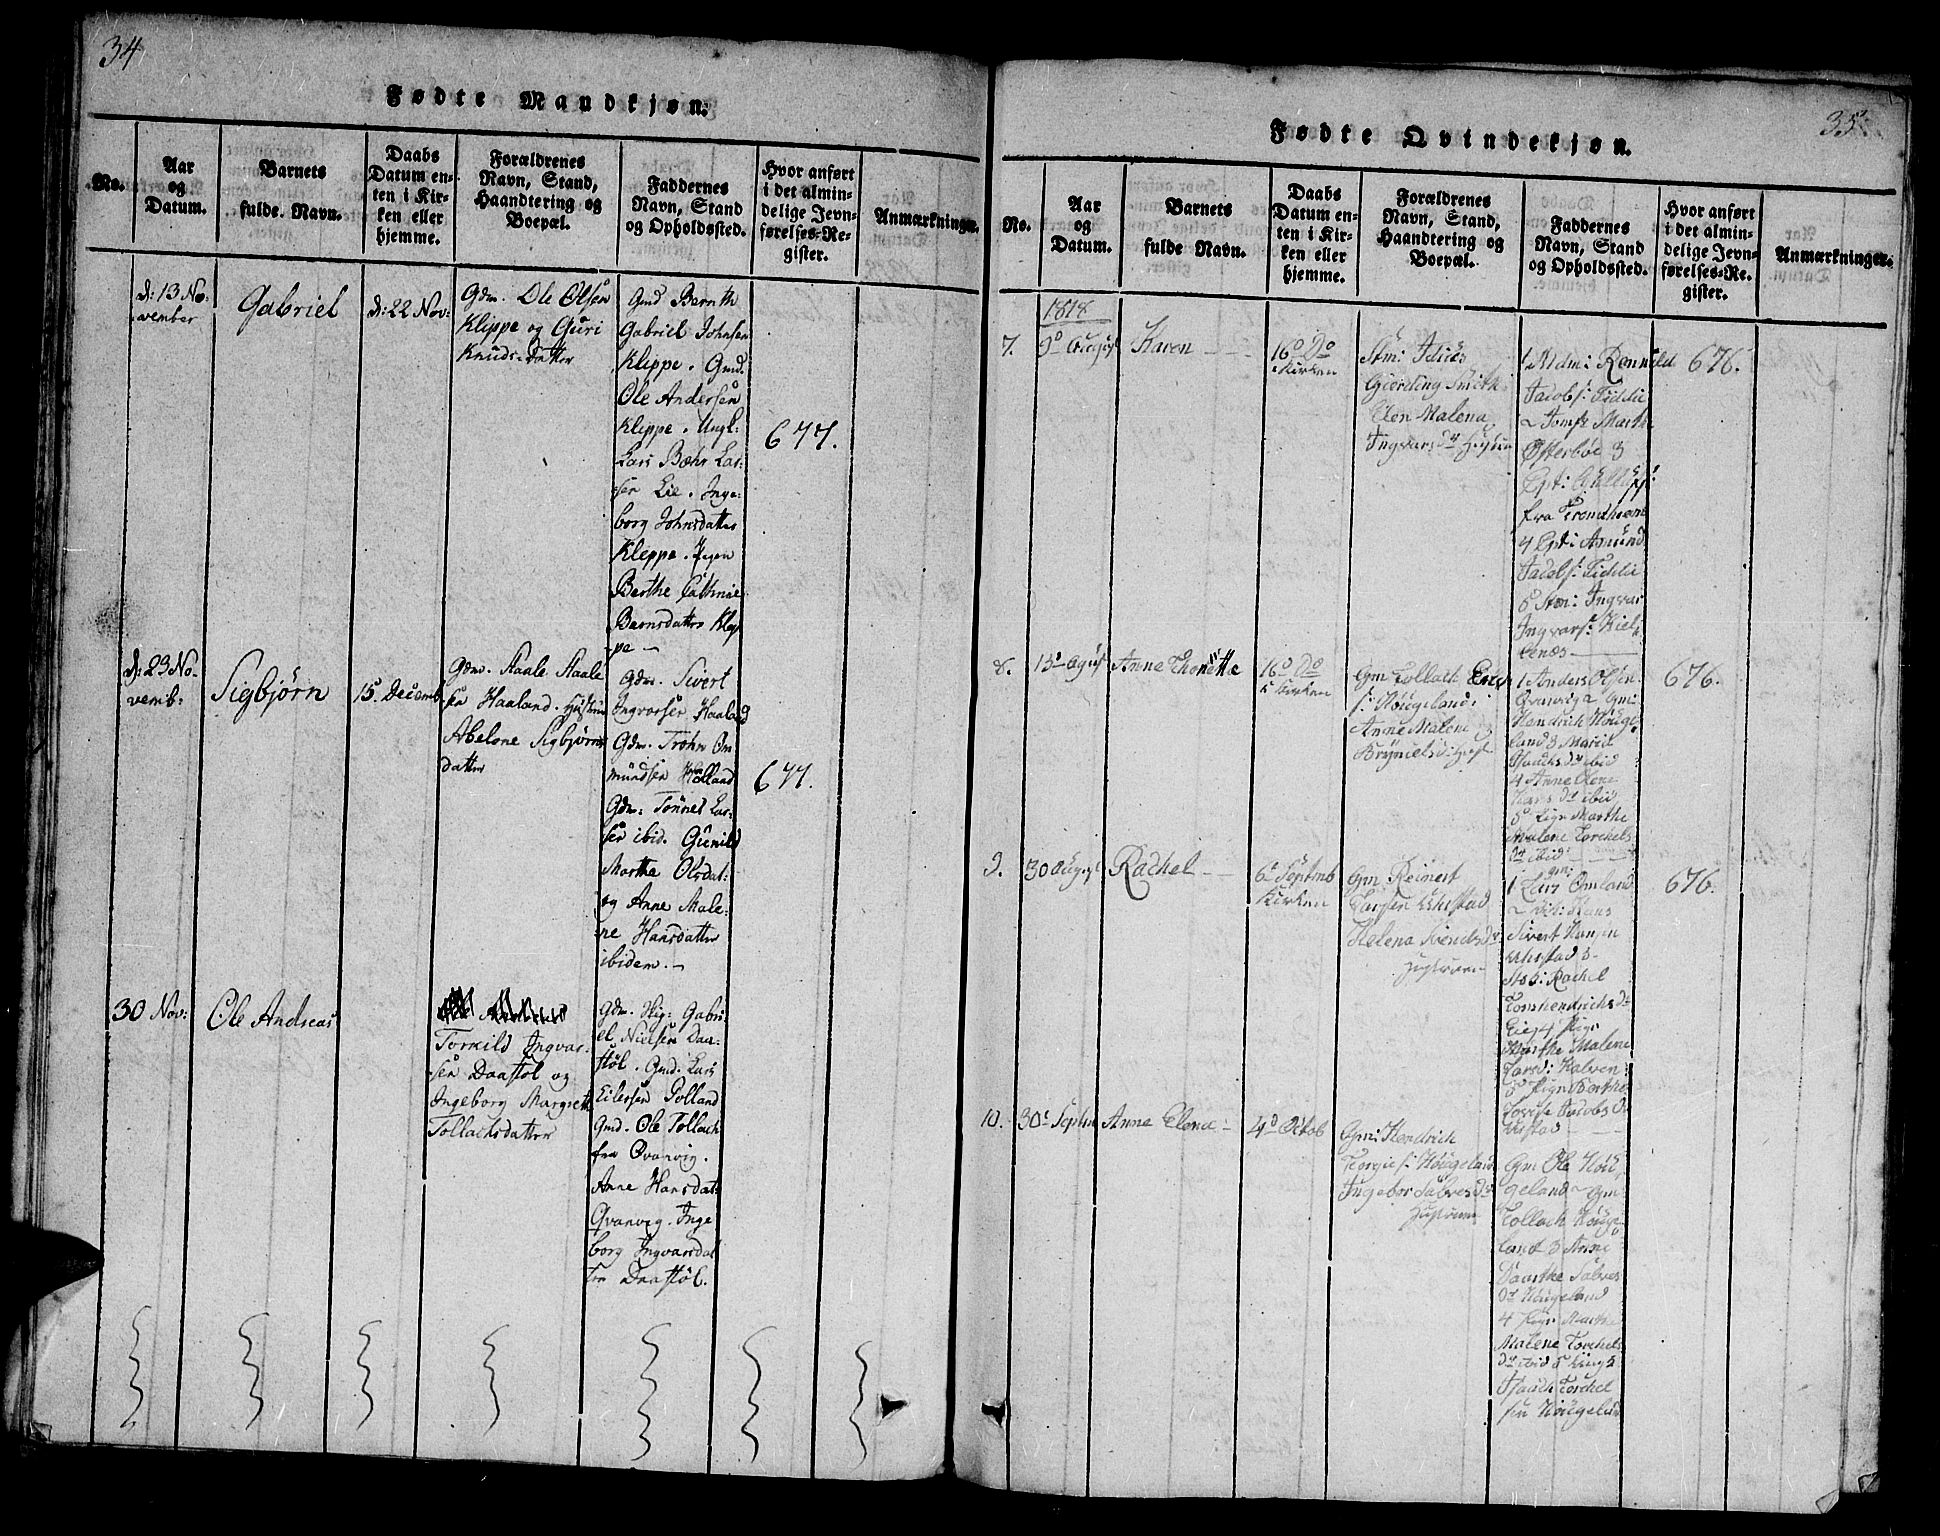 34
Fødte Mandkjøn.
No.
Aar
og
Datum.
Barnets
fulde Navn.
Daabs
Datum en-
ten i Kir-
ken eller
hjemme.
Forældrenes
Navn, Stand,
Haandtering og
Boepæl.
Faddernes
Navn, Stand
og Opholdssted.
Hvor anført
i det almin-
delige Jevn-
førelses-Re-
gister.
Anmærkninger.
d: 13 No:
vember
Gabriel
d: 22 Nov:
Gdm. Ole Olsen
Klippe og Guri
Knuds-datter
Gmd Bernth
Gabriel Johnsen
Klippe. Gmd.
Ole Andersen
Kleppe. Ungk:
Lars Bæhr Lar-
sen Lie. Inge-
borg Johnsdatter
Kleppe. Pigen
Berthe
Barnsdatter Klep
pe —
677.
d: 23 No-
vemb:
Sigbjørn
15. Decemb.
Gdm. Staale Staale
sen Haaland. Hustrue
Abelone Sigbjørns
datter
Gdm. Sivert
Ingvarsen Haaland
Gdm. Trohn Om
mundsen Holland
Gdm: Tønnes Lar-
sen ibid. Gunild
Martha Olsdat:
og Anne Male-
ne Hansdatter
ibidem. —
677.
30 Nov:
Ole Andreas
Torkild Ingvar-
sen Daastøl og
Ingeborg Margreth
Tollachsdatter
Gdm. Stig: Gabri
el Nielsen Daa-
støl. Gmd. Lars
Eilersen Polland
Gmd. Ole Tollach
fra Qvarvig.
Anne Hansdat:
Qvarvig. Inge
borg Ingvarsdat
ter Daastøl.
35
Fødte Qvindekjøn.
No.
Aar
og
Datum.
Barnets
fulde Navn.
Daabs
Datum en-
ten i Kir-
ken eller
hjemme.
Forældrenes
Navn, Stand,
Haandtering og
Boepæl.
Faddernes
Navn, Stand
og Opholdssted.
Hvor anført
i det almin-
delige Jevn-
førelses-Re-
gister.
Anmærkninger.
1818
7.
9d August
Karen
16d Do
Kirken
Stm:
Gierding Smith
Elen Malena
Ingvars Dr Hustru
1 Mdm: Rennild
Jacobs: Fiddie
2 Jomfr Marth
Østerbøe 3
Cpt:
fra Trondhiem
4 Cpt: Amund
Jacobs: Fiddie
5 Stm: Ingvar
Ingvars: Kiel
lenæs
676.
8.
13d Agust
Anne Thonette
16d Do
i Kirken
Gm Tollach Erich
s: Høugeland
Anne Malene
Bryniels d: Hust
1 Anders Olsen
Qvarviga Gm:
Hendrich Høuge
land 3 Marit
Staachs dr ibid
4 Anne Elene
Hans dr ibid
5 Pign Marthe
Malene Torchels
dr ibid
676.
9.
30 August
Rachel
6d Septmb
Kirken
Gm Reinert
Larsen Uhrstad
Helena Svends Dr
Hustruen
1 gm:
Lars Omland
2 Hans
Sivert Hansen
Uhrstad 3
Rachel
Tomhendrichs dr
Eieg 4 Pign
Marthe Malene
Larsd: Halven
5 Pign Berthe
Jacobs D.
Uhrstad
676.
10.
30d Septm
Anne Elena
4d Octob
Gm: Hendrich
Høugeland
Ingebor Salves Dr
Hustruen
Gm Ole Høu
geland 2 Gm
Tollach Høuge
land 3 Anne
Daarthe Salves
Dr Høugeland
4 Pign Marthe
Malene Torchels
Dr ibid 5 Ungk
Staach Torchel
sen Høugeland